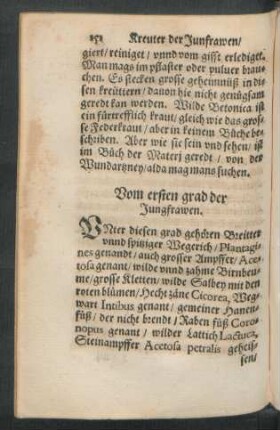 152 Kreuter der Junfrawen/
giert/reiniget/ vnnd vom gifft erlediget.
Man mags im pflaster oder puluer brau-
chen. Es stecken grosse geheimnüß in die
sen kreüttern/ dauon hie nicht genügsam
geredt kan werden. Wilde Betonica ist
ein fürtrefflich kraut/ gleich wie das gros
se Federkraut/ aber in keinem Büche be-
schriben. Aber wie sie sein vnd sehen/ ist
im Büch der Materj geredt/ von der
Wundartzney/ alda mag mans suchen.
Vom ersten grad der
Jungfrawen.
VNter diesen grad gehören Breitter
vnnd spitziger Wegerich/ Plantagi-
nes genandt/ auch grosser Ampffer/ Ace-
tosa genant/ wilde vnnd zahme Birnbeu-
me/ grosse Kletten/ wilde Salbey mit den
roten blümen/ Hecht zäne Cicorea, Weg-
wart Intibus genant/ gemeiner Hanen-
füß/ der nicht brendt/ Raben füß Coro-
nopus genant/ wilder Lattich Lactuca,
Steinampffer Acetosa petralis geheis-
sen/